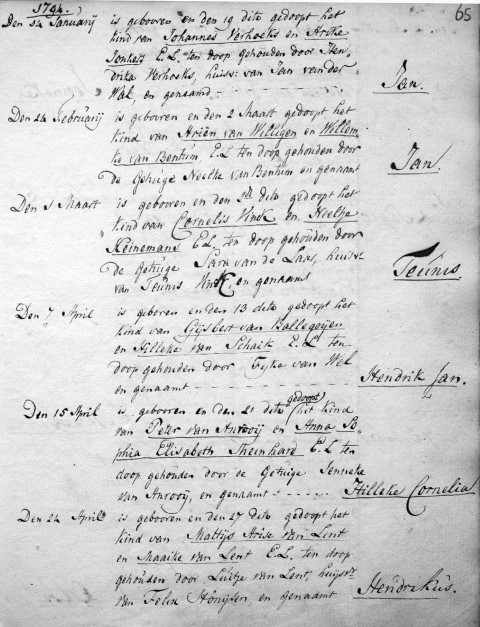 65
1794.
Den 14 Januarij is geboren en den 19 dito gedoopt het
kind van Johannes Verhoeks en
Jonkers E.L. ten doop gehouden door Hen
drika Verhoeks, huisv: van Jan van der
Wal, en genaamd - Jan.
Den 24 Februarij is geboren en den 2 Maart gedoopt het
kind van Ariën van Willigen en Willem
ke van Bentum, E.L ten doop gehouden door
de Getuige Neeltje van Bentum en genaamt Jan.
Den 1 Maart is geboren en den dito gedoopt het
kind van Cornelis Vink en Neeltje
Heinemans E.L. ten doop gehouden door
de Getuige Sara van de Laar, huisv:
van Teunis Vink, en genaamt Teunis.
Den 7 April is geboren en den 13 dito gedoopt het
kind van Gijsbert van Ballegoijen
en Hilleke van Schaik E.L. ten
doop gehouden door Fyke van Wel
en genaamt - - - - - - Hendrik Jan.
Den 15 April is geboren en den 21 dito gedoopt het kind
van Peter van Anrooij en Anna So-
phia Elisabeth Theinhard E.L ten
doop gehouden door de Getuige Jenneke
van Anrooij, en genaamt - - - - - Hilleke Cornelia
Den 24 April is geboren en den 27 dito gedoopt het
kind van Mattijs Arise van Lent
en Maaike van Lent E.L. ten doop
gehouden door Luitje van Lent, huijsv:
van Felix, en genaamt Hendrikus.